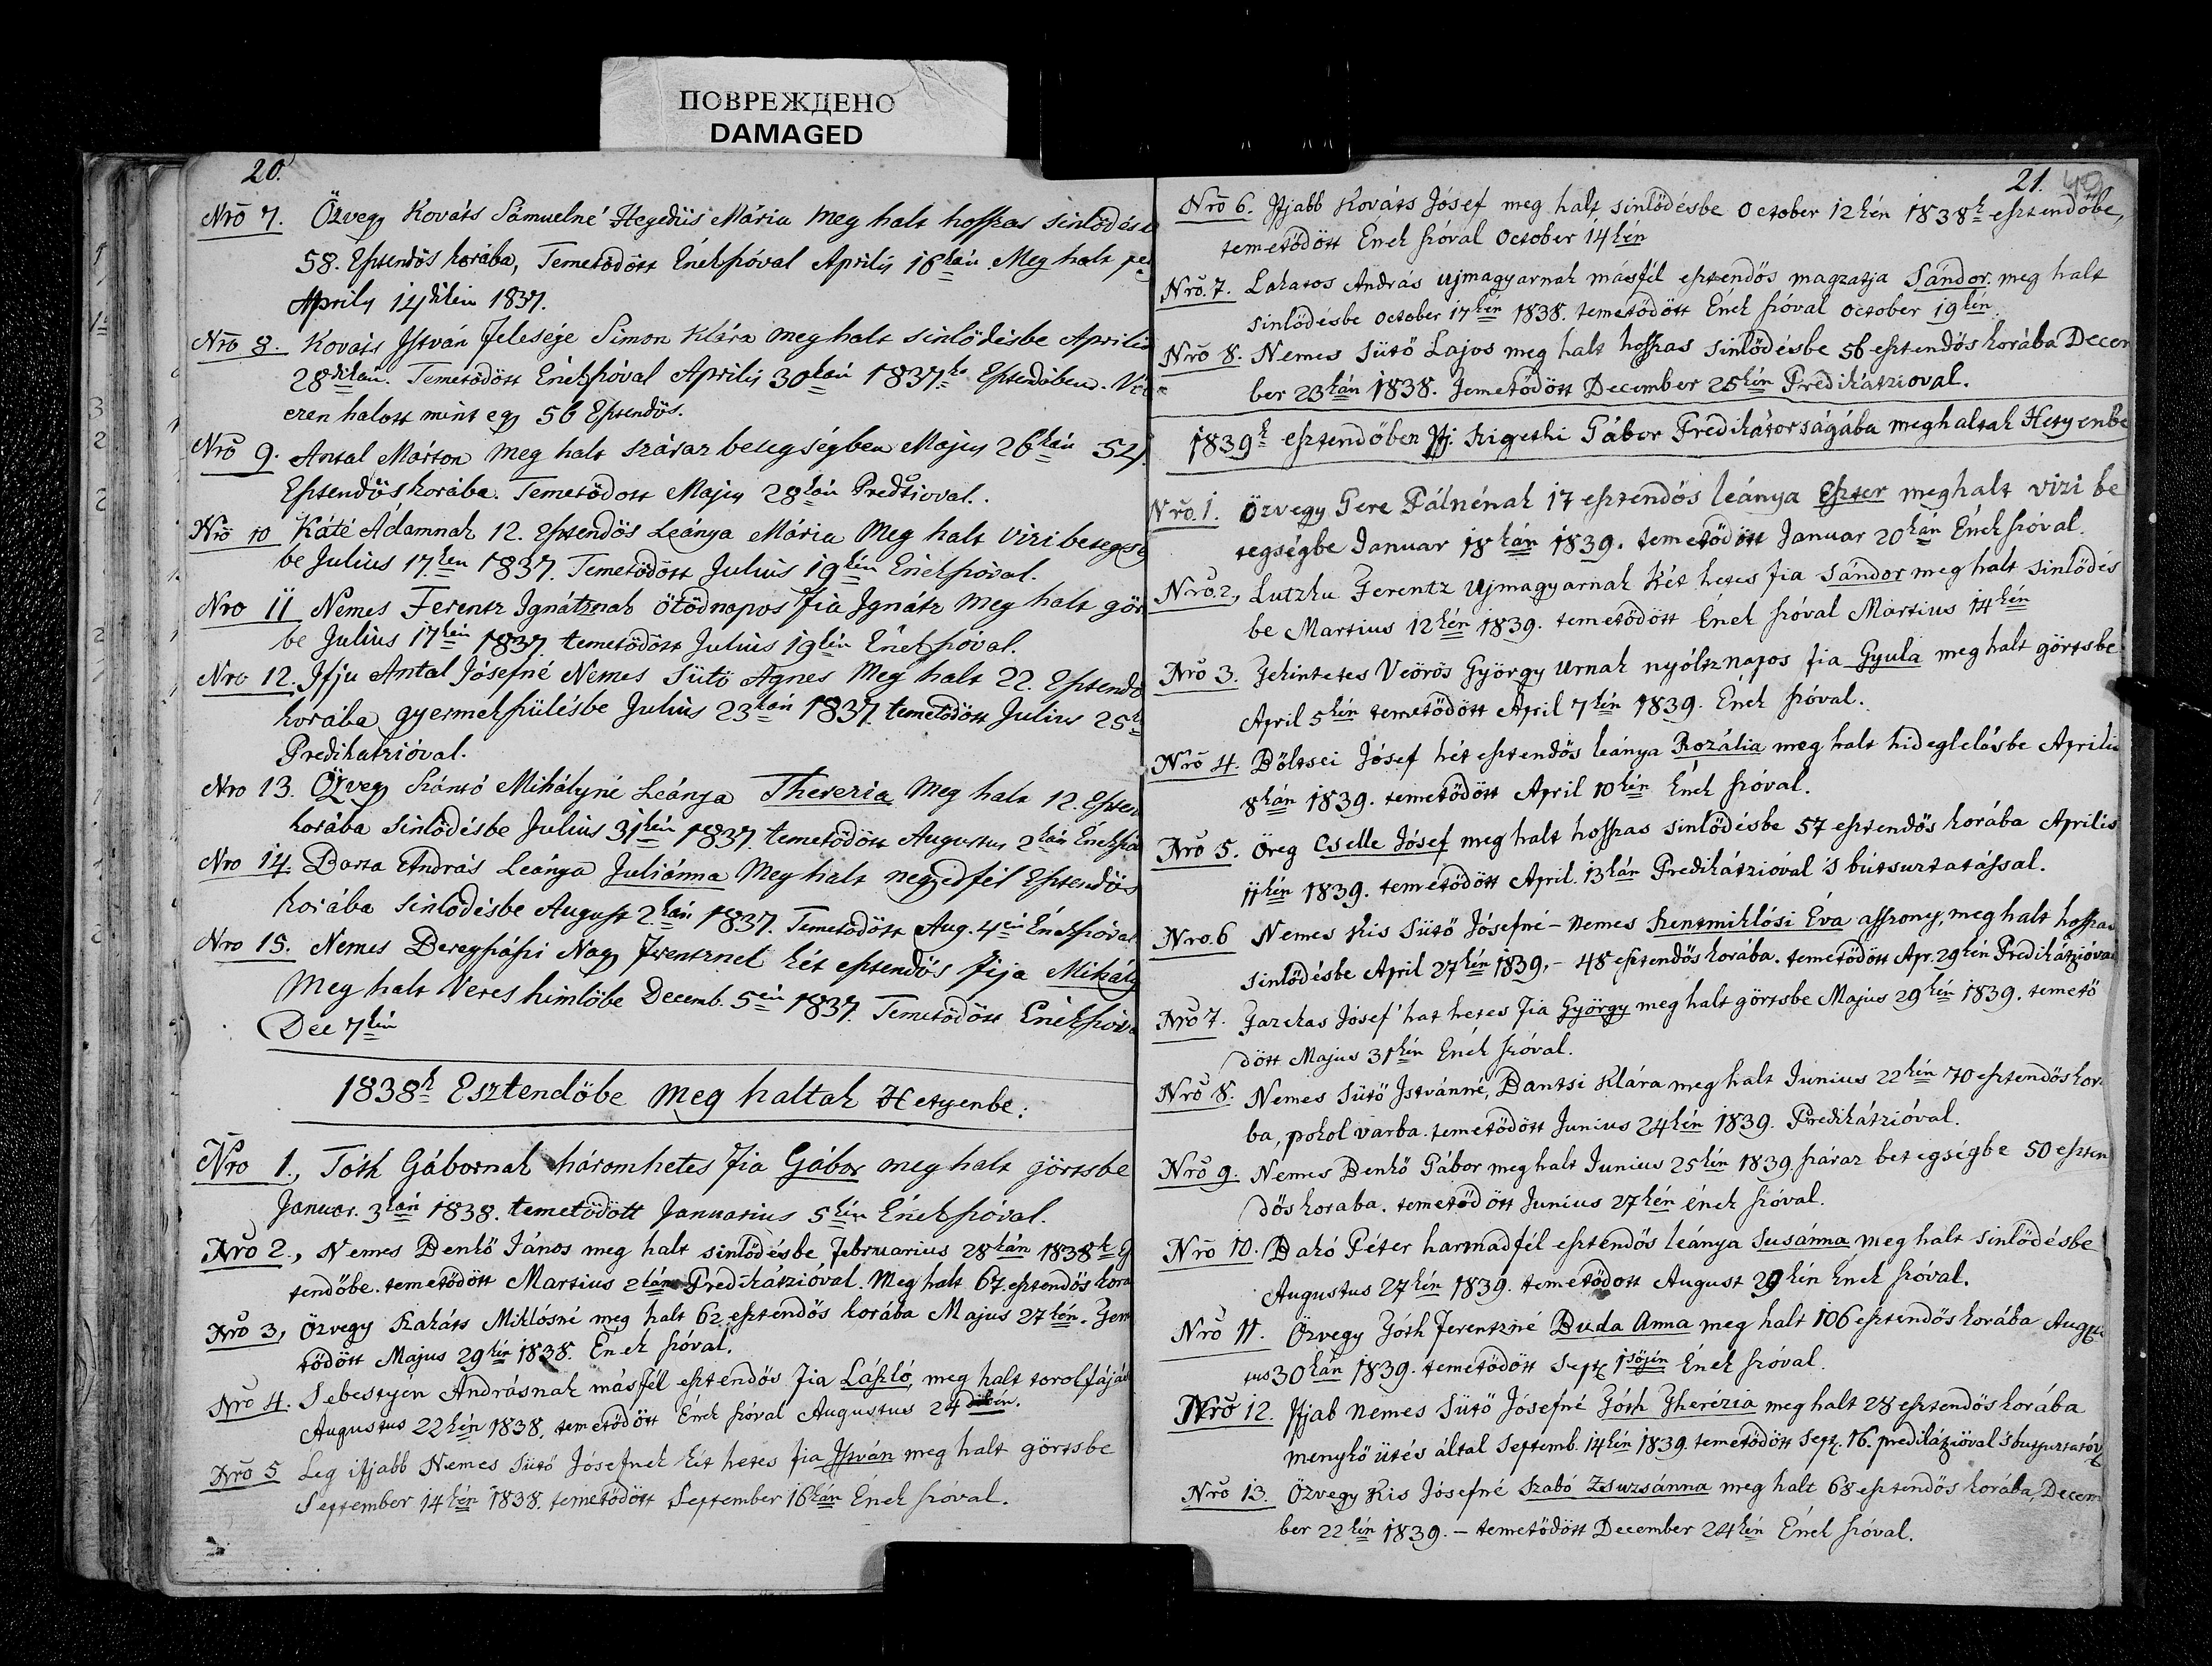 ПОВРЕЖДЕНО
DAMAGED
20.
Nrō 7. Özvegy Kováts Sámuelné Hegedüs Mária Meg halt hoszszas sinlődés
58. Esztendös korába, Temetődött Énekszóval Aprilis 16kán. Meg halt
Aprilis 14dikén 1837.
Nrō 8. Kováts István felesége Simon Klára meg halt sinlődésbe Aprilis
28dikán. Temetődött Énekszóval Aprilis 30kán 1837k Esztendőben.
ezen halott mint egy 56 Esztendős.
Nrō 9. Antal Márton Meg halt száraz betegségben Május 26kán 54.
Esztendős korába. Temetődött Május 28kán Predtioval.
Nrō 10 Káté Ádámnak 12. Esztendös Leánya Mária Meg halt vizi betegség
be Július 17ken 1837. Temetődött Július 19kén Énekszóval.
Nro 11 Nemes Ferentz Ignátznak ötödnapos fia Ignátz Meg halt gör
be Július 17kén 1837. temetődött Július 19kén Énekszóval.
Nro 12. Ifju Antal Jósefné Nemes Sütö Ágnes Meg halt 22. Esztendő
korába gyermekszülésbe Július 23kán 1837. temetődött Július 25k
Predikatzióval.
Nro 13. Özvegy Szántó Mihályné Leánya Therezia Meg halt 12. Eszten
korába sinlődésbe Július 31kén 1837. temetődött Augustus 2kán Énekszó
Nro 14. Barta András Leánya Juliánna Meg halt negyedfél Esztendős
korába sinlődésbe August 2kán 1837. Temetődött Aug. 4én Énekszóval
Nro 15. Nemes Deregszászi Nagy Ferentznek két esztendős Fija Mihály
Meg halt Veres himlöbe Decemb. 5én 1837. Temetődött Énekszóva
Dec 7kén
1838k Esztendöbe meg haltak Hetyenbe:
Nro 1., Tóth Gábornak háromhetes Fia Gábor meg halt görtsbe
Januar. 3kán 1838. temetődött Januarius 5kén Énekszóval.
Nrō 2., Nemes Benkő János meg halt sinlődésbe Februarius 28kán 1838k
tendőbe. temetődött Martius 2kán Predikátzióval. Meg halt 67. esztendős kora
Nrō 3, Özvegy Szakáts Miklósné meg halt 62 esztendős korába Majus 27kén. Tem
tődött Majus 29kén 1838. Ének szóval.
Nrō 4. Sebestyén Andrásnak másfél esztendős Fia László, meg halt torokfájás
Augustus 22kén 1838, temetődött Ének szóval Augustus 24dikén.
Nrō 5 Leg ifjabb Nemes Sütő Jósefnek két hetes fia István meg halt görtsbe
September 14kén 1838. temetődött September 16kán Ének szóval.
21.
Nrō 6. Ifjabb Kováts Jósef meg halt sinlődésbe October 12kén 1838k esztendőbe,
temetődött Ének szóval October 14kén
Nrō. 7. Lakatos András ujmagyarnak másfél esztendős magzatja Sándor meg halt
sinlődésbe October 17kén 1838. temetődött Ének szóval October 19kén.
Nrō 8. Nemes Sütő Lajos meg halt hoszszas sinlődésbe 56 esztendős korába Decem
ber 23kán 1838. temetődött December 25kén Predikátzioval.
1839k esztendőben Ifj. Szigethi Gábor Predikátorságába meghaltak Hetyenbe
Nrō. 1. Özvegy Gere Pálnénak 17 esztendős leánya Eszter meghalt vizi be
tegségbe Januar 18kán 1839. temetődött Januar 20kán Énekszóval.
Nro. 2, Lutzku Ferentz Ujmagyarnak két hetes fia Sándor meg halt sinlődés
be Martius 12kén 1839. temetődött Ének szóval Martius 14kén
Nrō 3. Tekintetes Veörös György Urnak nyóltznapos fia Gyula meg halt görtsbe
April 5kén temetődött April 7kén 1839. Ének szóval.
Nrō 4. Böltsei Jósef hét esztendős leánya Rozália meg halt hideglelásbe Aprilis
8kán 1839. temetődött April 10kén Ének szóval.
Nrō 5. Öreg Cselle Jósef meg halt hoszszas sinlődésbe 57 esztendős korába Aprilis
11kén 1839. temetődött April. 13kán Predikátzióval 's bútsuztatással.
Nro. 6 Nemes Kis Sütő Jósefné – Nemes Szentmiklósi Éva aszszony, meg halt hoszszas
sinlődésbe April 27kén 1839. – 48 esztendős korába. temetődött Apr. 29kén Predikátzióval
Nrō 7. Fazekas Jósef hat hetes Fia György meg halt görtsbe Majus 29kén 1839. temető
dött Majus 31kén Ének szóval.
Nrō 8. Nemes Sütő Istvánné, Bantsi Klára meg halt Junius 22kén 70 esztendős kor
ba, pokol varba. temetődött Junius 24kén 1839. Predikátzióval.
Nrō 9. Nemes Benkő Gábor meg halt Junius 25kén 1839 száraz betegségbe 50 eszten
dős koraba. temetődött Junius 27kén ének szóval.
Nrō 10. Bakó Péter harmadfél esztendős leánya Susánna meg halt sinlődésbe
Augustus 27kén 1839. temetődött August 29kén Ének szóval.
Nrō 11. Özvegy Tóth Ferentzné Buda Anna meg halt 106 esztendős korába Augus
tus 30kán 1839. temetődött Sept 1sőjén Ének szóval.
Nrō 12. Ifjab Nemes Sütő Jósefné Tóth Therézia meg halt 28 esztendős korába
menykő ütés által Septemb. 14kén 1839. temetődött Sept. 16. predikátzióval 's
Nrō 13. Özvegy Kis Jósefné Szabó Zsuzsánna meg halt 68 esztendős korába, Decem
ber 22kén 1839. – temetődött December 24kén Ének szóval.